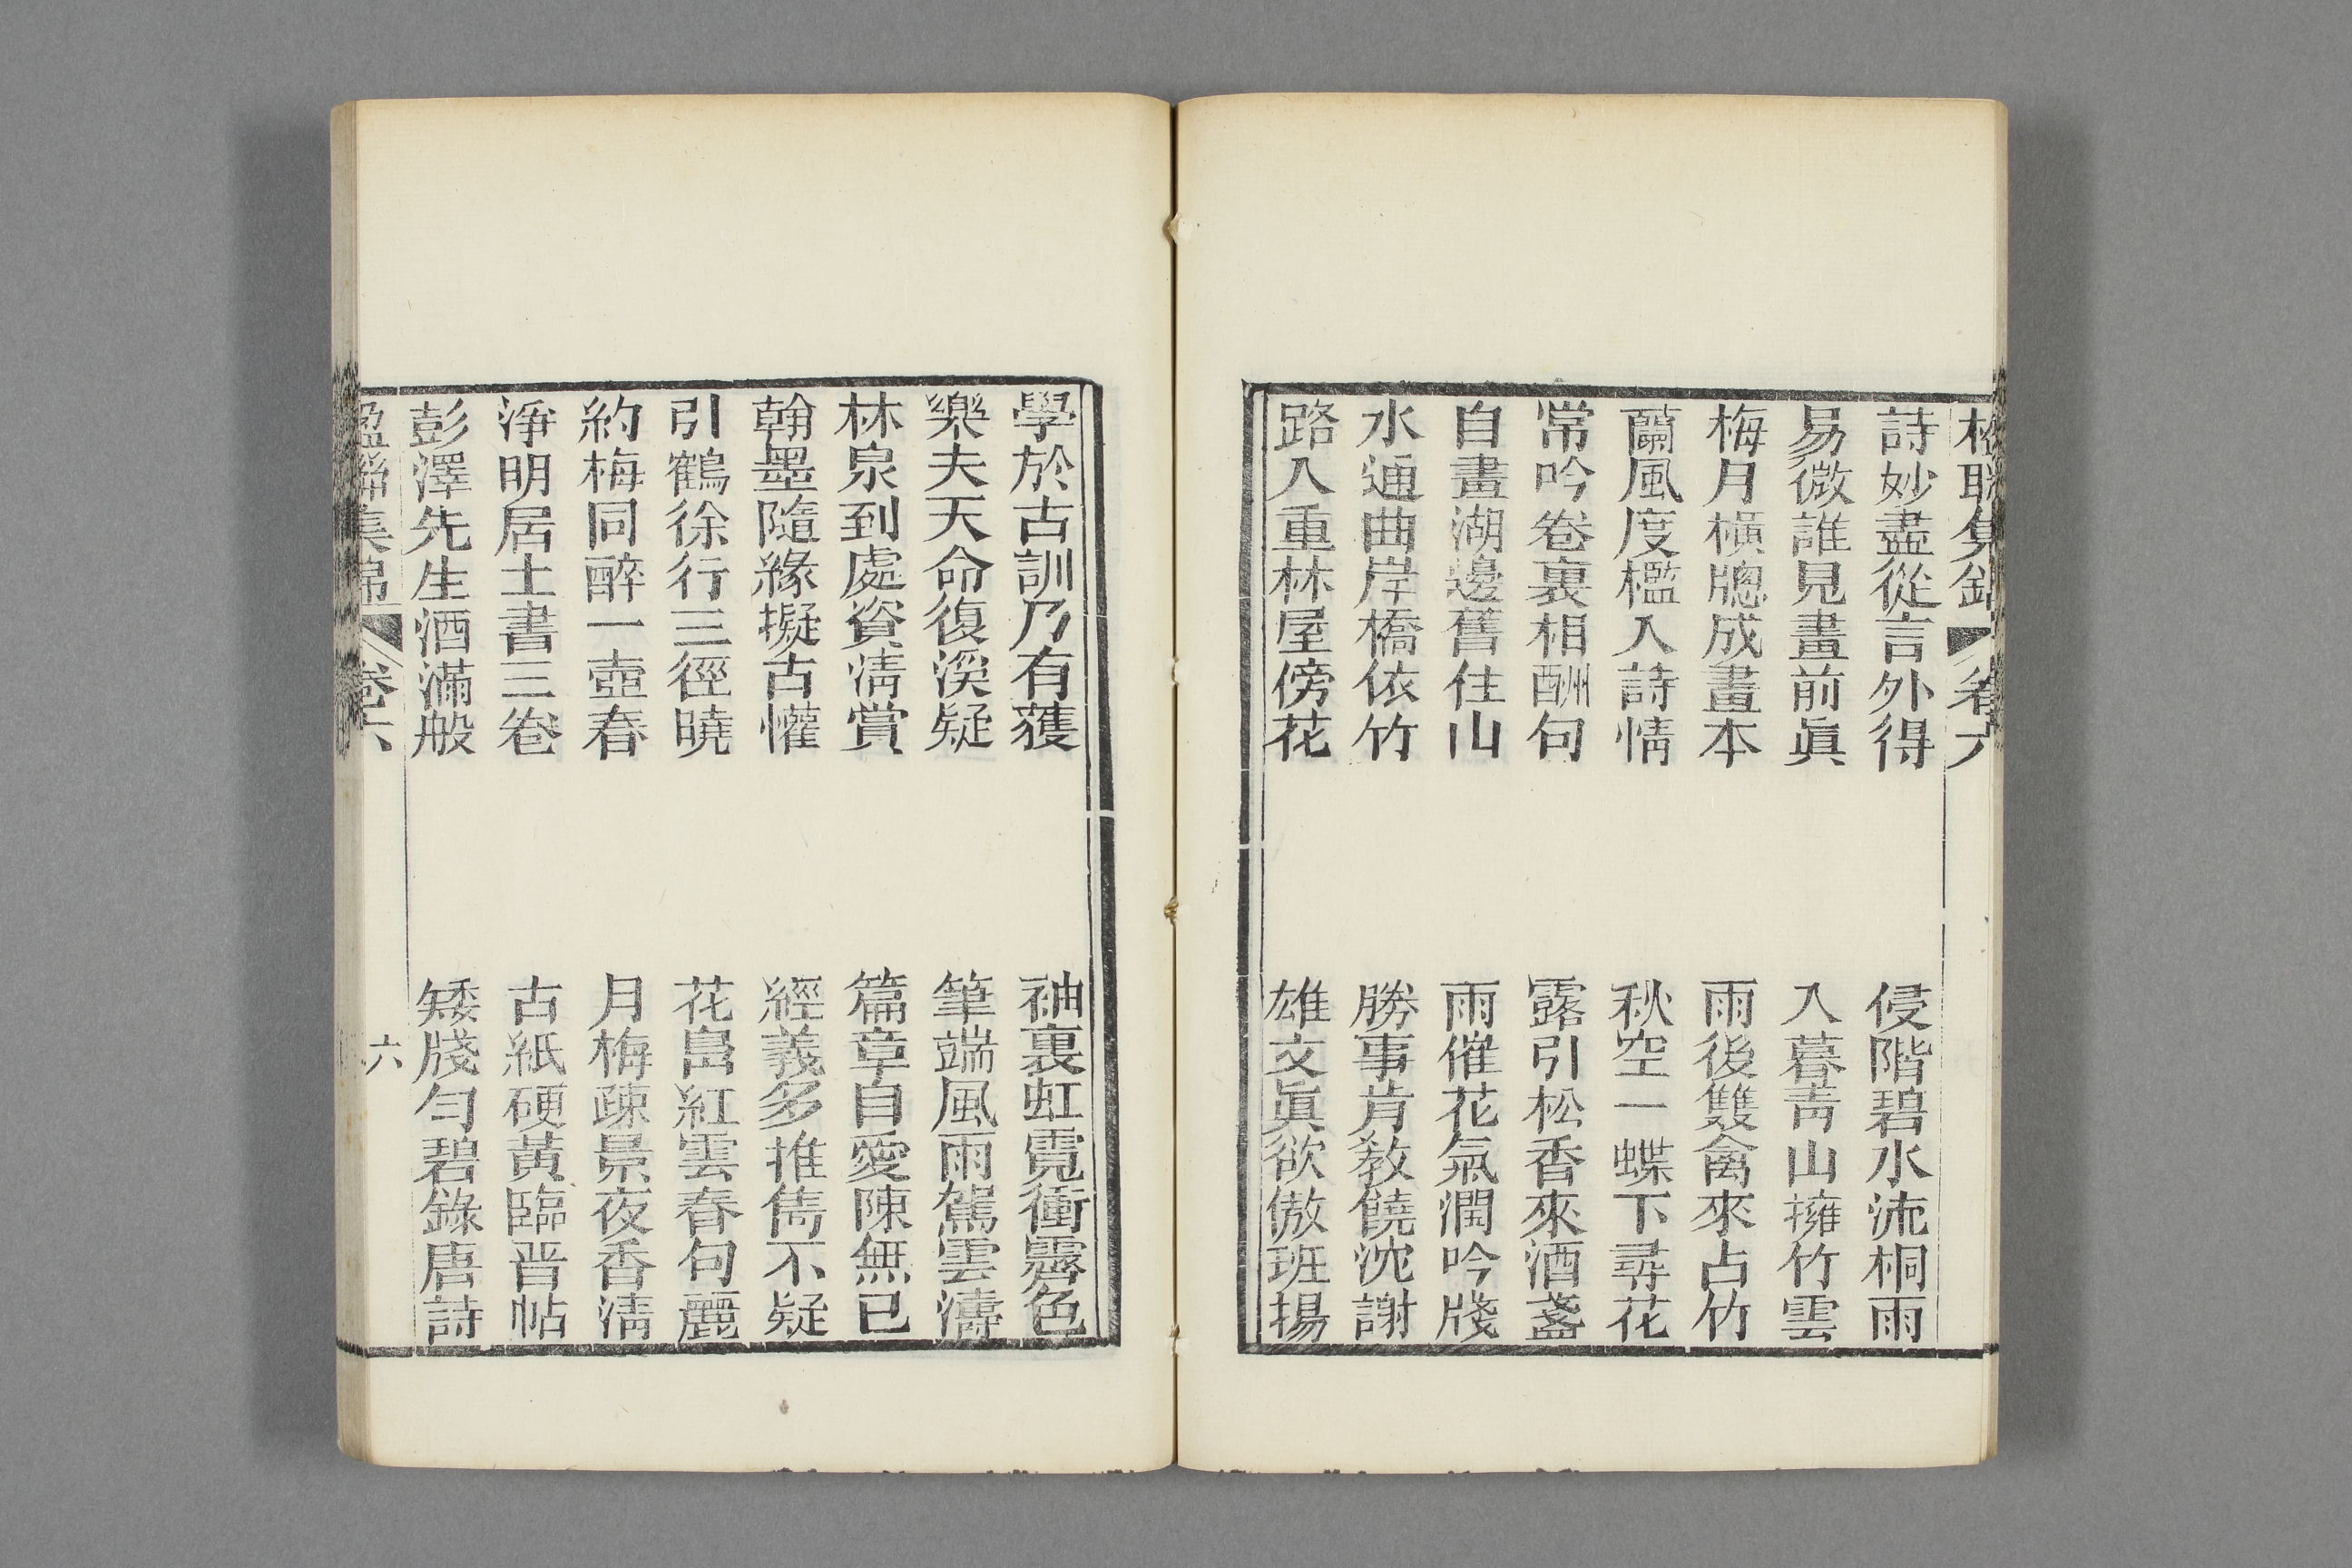 楹聯集錦 卷六
詩妙盡從言外得 侵階碧水流桐雨
易微誰見畫前眞 入暮靑山擁竹雲
梅月橫牕成畫本 雨後雙禽來占竹
蘭風度檻入詩情 秋空一蝶下尋花
常吟卷裏相酬句 露引松香來酒盞
自畫湖邊舊住山 雨催花氣潤吟牋
水通曲岸橋依竹 勝事肯敎饒沈謝
路入重林屋傍花 雄文眞欲傲班揚
學於古訓乃有獲 袖裏虹霓衝霽色
樂夫天命復溪疑 筆端風雨駕雲濤
林泉到處資淸賞 篇章自愛陳無已
翰墨隨緣擬古懽 經義多推雋不疑
引鶴徐行三徑曉 花島紅雲春句麗
約梅同醉一壺春 月梅疎景夜香淸
淨明居士書三卷 古紙硬黃臨晋帖
彭澤先生酒滿般 矮牋勻碧錄唐詩
楹聯集錦 卷六 六